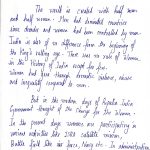 The world is created with half men
and half women. Men had dominated countries
since decades and women had been enslaved by men.
India is also of no difference from the beginning of
the King's ruling age. There was no role of women
in the History of India except few.
Women had face through domestic violence, abuse
and inequality compared to men.
But in the modern days of Republic India
Government thought of the change for the women.
In the present days women are participating in
various activities like ISRO satellite mission,
Battle field like air force, Navy etc. In administration